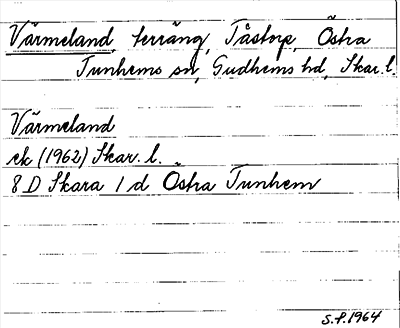 Värmeland, terräng, Tåstorp, Östra
Tunhems sn, Gudhems hd, Skar. l.
Värmeland
ek (1962) Skar. l.
8 D Skara 1 d Östra Tunhem
S.P. 1964